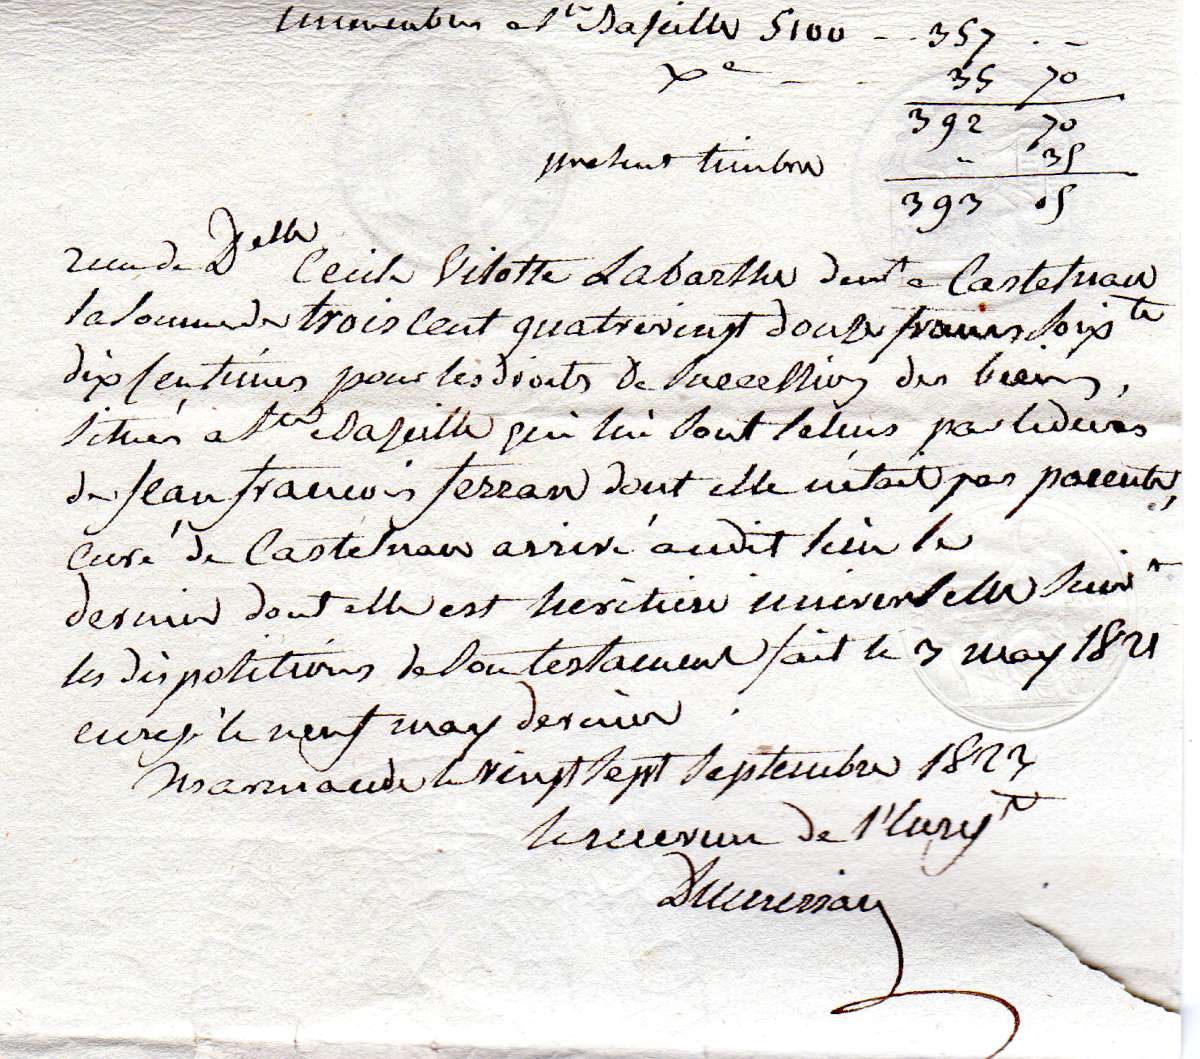 a Ste Bazeille 5100 - - 357 . -
Xe - - - 35 70
392 70
present timbre - 35
393 05
recu de Delle Cecile Vilotte Labarthe demt a Castelnau
la somme de trois cent quatrevingt douze francs soixte
dix centimes pour les droits de succession des biens,
situés a Ste Bazeille qui lui sont echus par le décés
de Jean francois ferran dont elle n'etait pas parente,
curé de Castelnau arrivé audit lieu le
dernier dont elle est héritiere universelle suivt
les dispositions de son testament fait le 3 may 1821
enregé le neuf may dernier.
Marmande le vingt sept septembre 1823
le receveur de l'Enregt